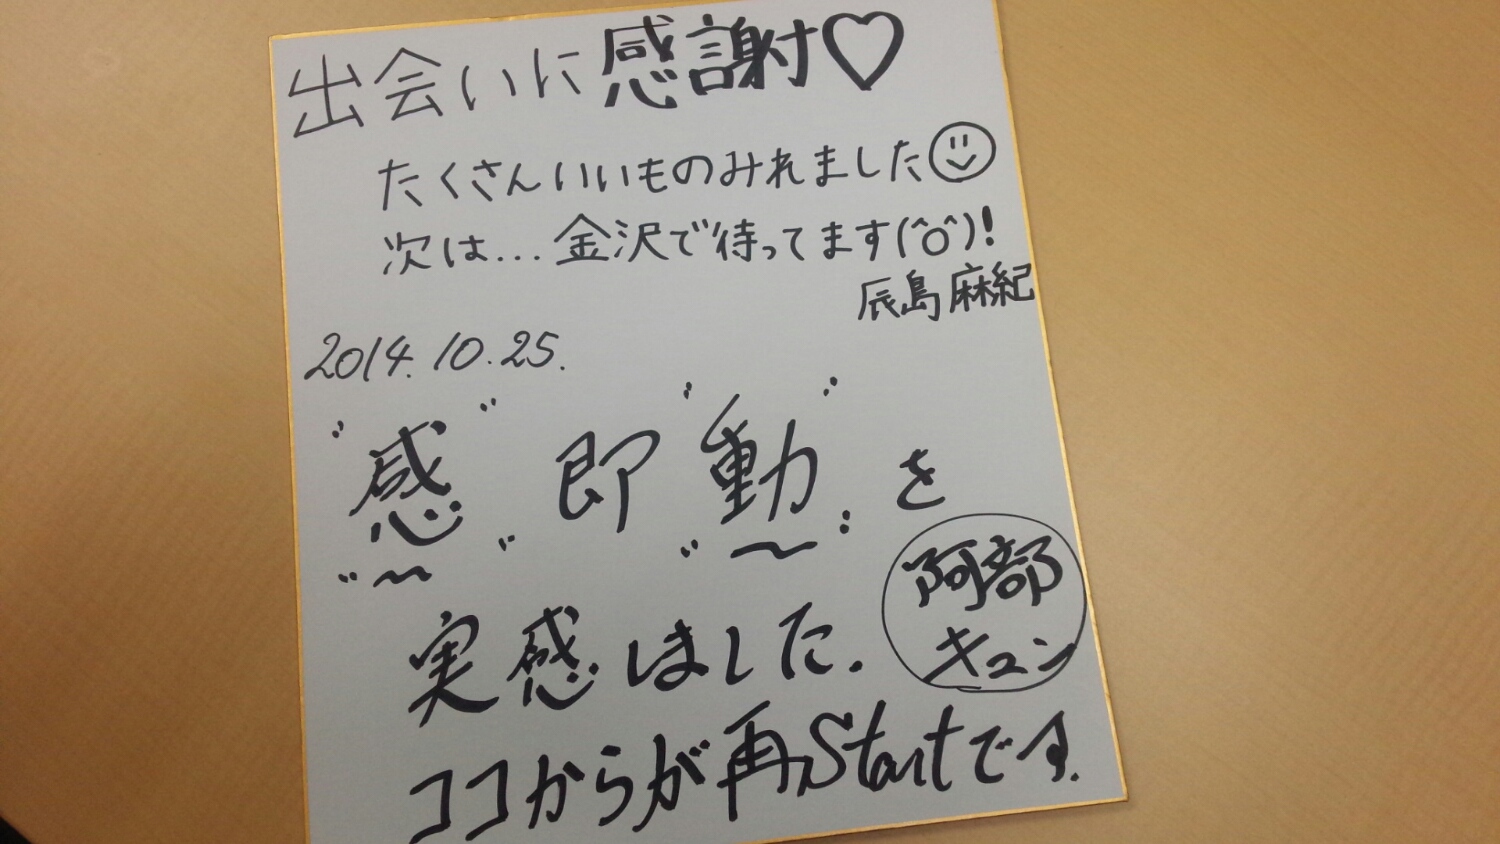 出会いに感謝♡
たくさんいいものみれました☺
次は...金沢で待ってます(^o^)!
辰島麻紀
2014.10.25.
"感"即"動"を
実感しました.
阿部
キュン
ココからが再Startです.